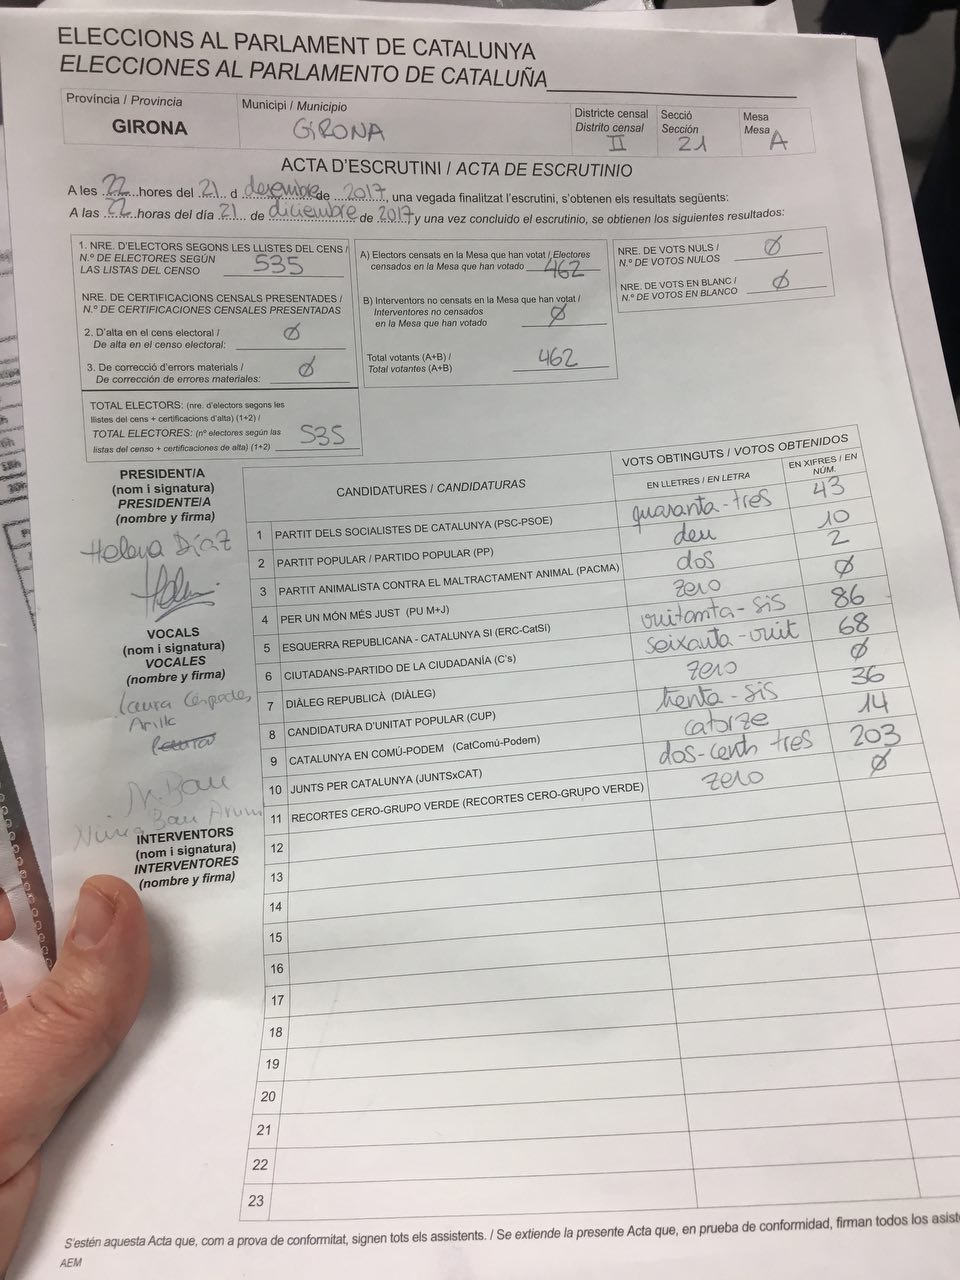 ELECCIONS AL PARLAMENT DE CATALUNYA
ELECCIONES AL PARLAMENTO DE CATALUÑA
Província / Provincia
GIRONA
Municipi / Municipio
GIRONA
Districte censal
Distrito censal
II
Secció
Sección
21
Mesa
Mesa
A
ACTA D'ESCRUTINI / ACTA DE ESCRUTINIO
A les 22 hores del 21 d desembre de 2017, una vegada finalitzat l'escrutini, s'obtenen els resultats següents:
A las 22 horas del día 21 de diciembre de 2017 y una vez concluido el escrutinio, se obtienen los siguientes resultados:
1. NRE. D'ELECTORS SEGONS LES LLISTES DEL CENS /
N.º DE ELECTORES SEGÚN
LAS LISTAS DEL CENSO 535
NRE. DE CERTIFICACIONS CENSALS PRESENTADES /
N.º DE CERTIFICACIONES CENSALES PRESENTADAS
2. D'alta en el cens electoral /
De alta en el censo electoral: Ø
3. De correcció d'errors materials /
De corrección de errores materiales: Ø
TOTAL ELECTORS: (nre. d'electors segons les
llistes del cens + certificacions d'alta) (1+2) /
TOTAL ELECTORES: (nº electores según las
listas del censo + certificaciones de alta) (1+2) 535
A) Electors censats en la Mesa que han votat / Electores
censados en la Mesa que han votado 462
B) Interventors no censats en la Mesa que han votat /
Interventores no censados
en la Mesa que han votado Ø
Total votants (A+B) /
Total votantes (A+B) 462
NRE. DE VOTS NULS /
N.º DE VOTOS NULOS Ø
NRE. DE VOTS EN BLANC /
N.º DE VOTOS EN BLANCO Ø
PRESIDENT/A
(nom i signatura)
PRESIDENTE/A
(nombre y firma)
Helena Díaz
VOCALS
(nom i signatura)
VOCALES
(nombre y firma)
Laura Céspedes
INTERVENTORS
(nom i signatura)
INTERVENTORES
(nombre y firma)
CANDIDATURES / CANDIDATURAS
VOTS OBTINGUTS / VOTOS OBTENIDOS
EN LLETRES / EN LETRA
EN XIFRES / EN NÚM.
1 PARTIT DELS SOCIALISTES DE CATALUNYA (PSC-PSOE) quaranta-tres 43
2 PARTIT POPULAR / PARTIDO POPULAR (PP) deu 10
3 PARTIT ANIMALISTA CONTRA EL MALTRACTAMENT ANIMAL (PACMA) dos 2
4 PER UN MÓN MÉS JUST (PU M+J) zero Ø
5 ESQUERRA REPUBLICANA - CATALUNYA SI (ERC-CatSí) vuitanta-sis 86
6 CIUTADANS-PARTIDO DE LA CIUDADANÍA (C's) seixanta-vuit 68
7 DIÀLEG REPUBLICÀ (DIÀLEG) zero Ø
8 CANDIDATURA D'UNITAT POPULAR (CUP) trenta-sis 36
9 CATALUNYA EN COMÚ-PODEM (CatComú-Podem) catorze 14
10 JUNTS PER CATALUNYA (JUNTSxCAT) dos-cents tres 203
11 RECORTES CERO-GRUPO VERDE (RECORTES CERO-GRUPO VERDE) zero Ø
12
13
14
15
16
17
18
19
20
21
22
23
S'estén aquesta Acta que, com a prova de conformitat, signen tots els assistents. / Se extiende la presente Acta que, en prueba de conformidad, firman todos los
AEM